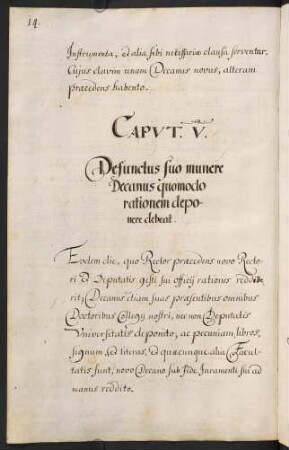 14.
Instrumenta, et alia sibi necessaria clausa serventur.
Cujus clavim unam Decanus novus, alteram
præcedens habento.
CAPVT. V.
Defunctus suo munere
Decanus quomodo
rationem depo-
nere debeat.
Eodem die, quo Rector præcedens novo Recto-
ri et Deputatis gesti sui officij rationes redde-
rit; Decanus etiam suas præsentibus omnibus
Doctoribus Collegij nostri, nec non Deputatis
Vniversitatis deponito, ac pecuniam, libros,
signum, literas, et quæcunque alia Facul-
tatis sunt, novo Decano sub fide Juramenti sui ad
manus reddito.